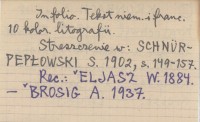 In folio. Tekst niem. i franc.
10 kolor. litografii.
Streszczenie w: SCHNÜR-
PEPŁOWSKI S. 1902, s. 149-157.
Rec.: "ELJASZ W. 1884.
— "BROSIG A. 1937.